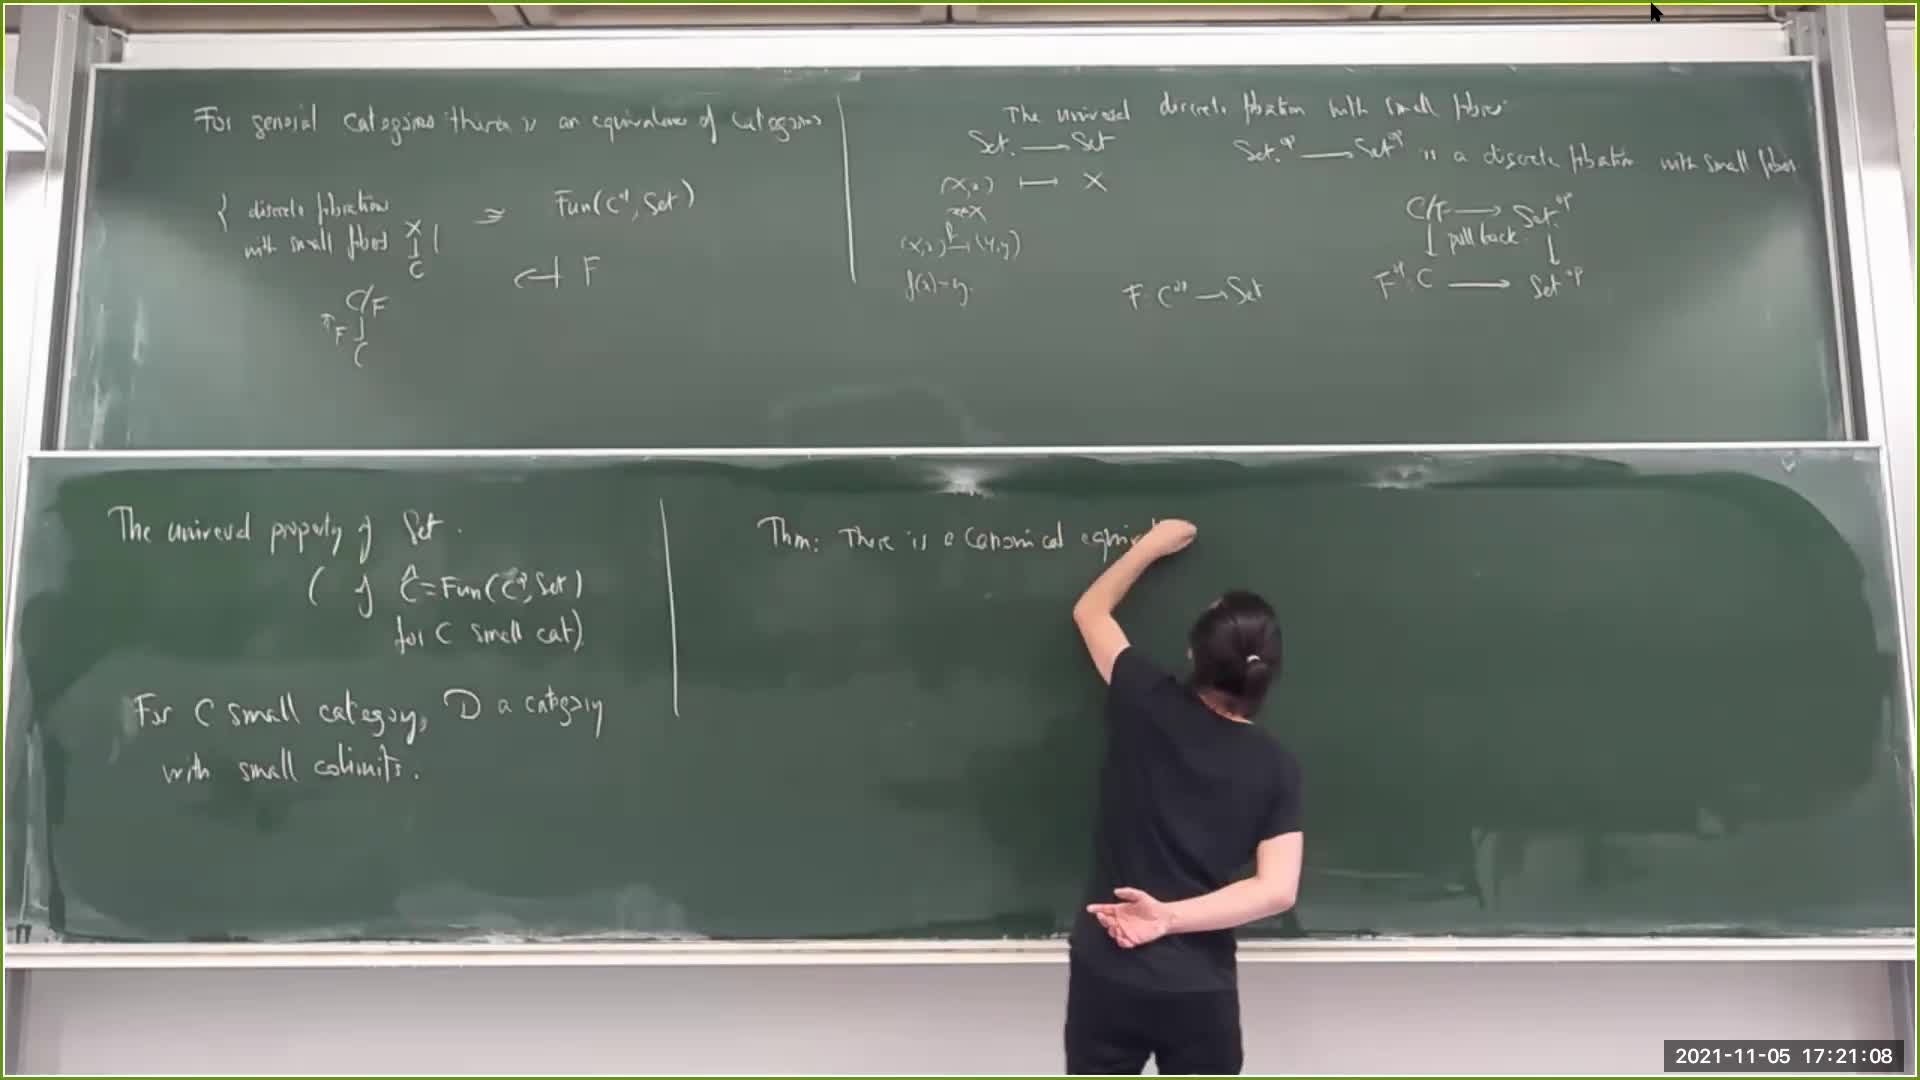 For general categories there is an equivalence of categories
{ discrete fibrations
with small fibers X ↓ C } ≅ Fun(C^op, Set)
C/F ↤ F
π_F ↓
C
The universal discrete fibration with small fibers
Set. → Set
(X,x) ↦ X
x∈X
(X,x) →f (Y,y)
f(x)=y.
Set.^op → Set^op is a discrete fibration with small fibers
F: C^op → Set
C/F → Set.^op
↓ pull back ↓
F^op: C → Set^op
The universal property of Set.
( of Ĉ = Fun(C^op, Set)
for C small cat).
For C small category, D a category
with small colimits.
Thm: There is a canonical